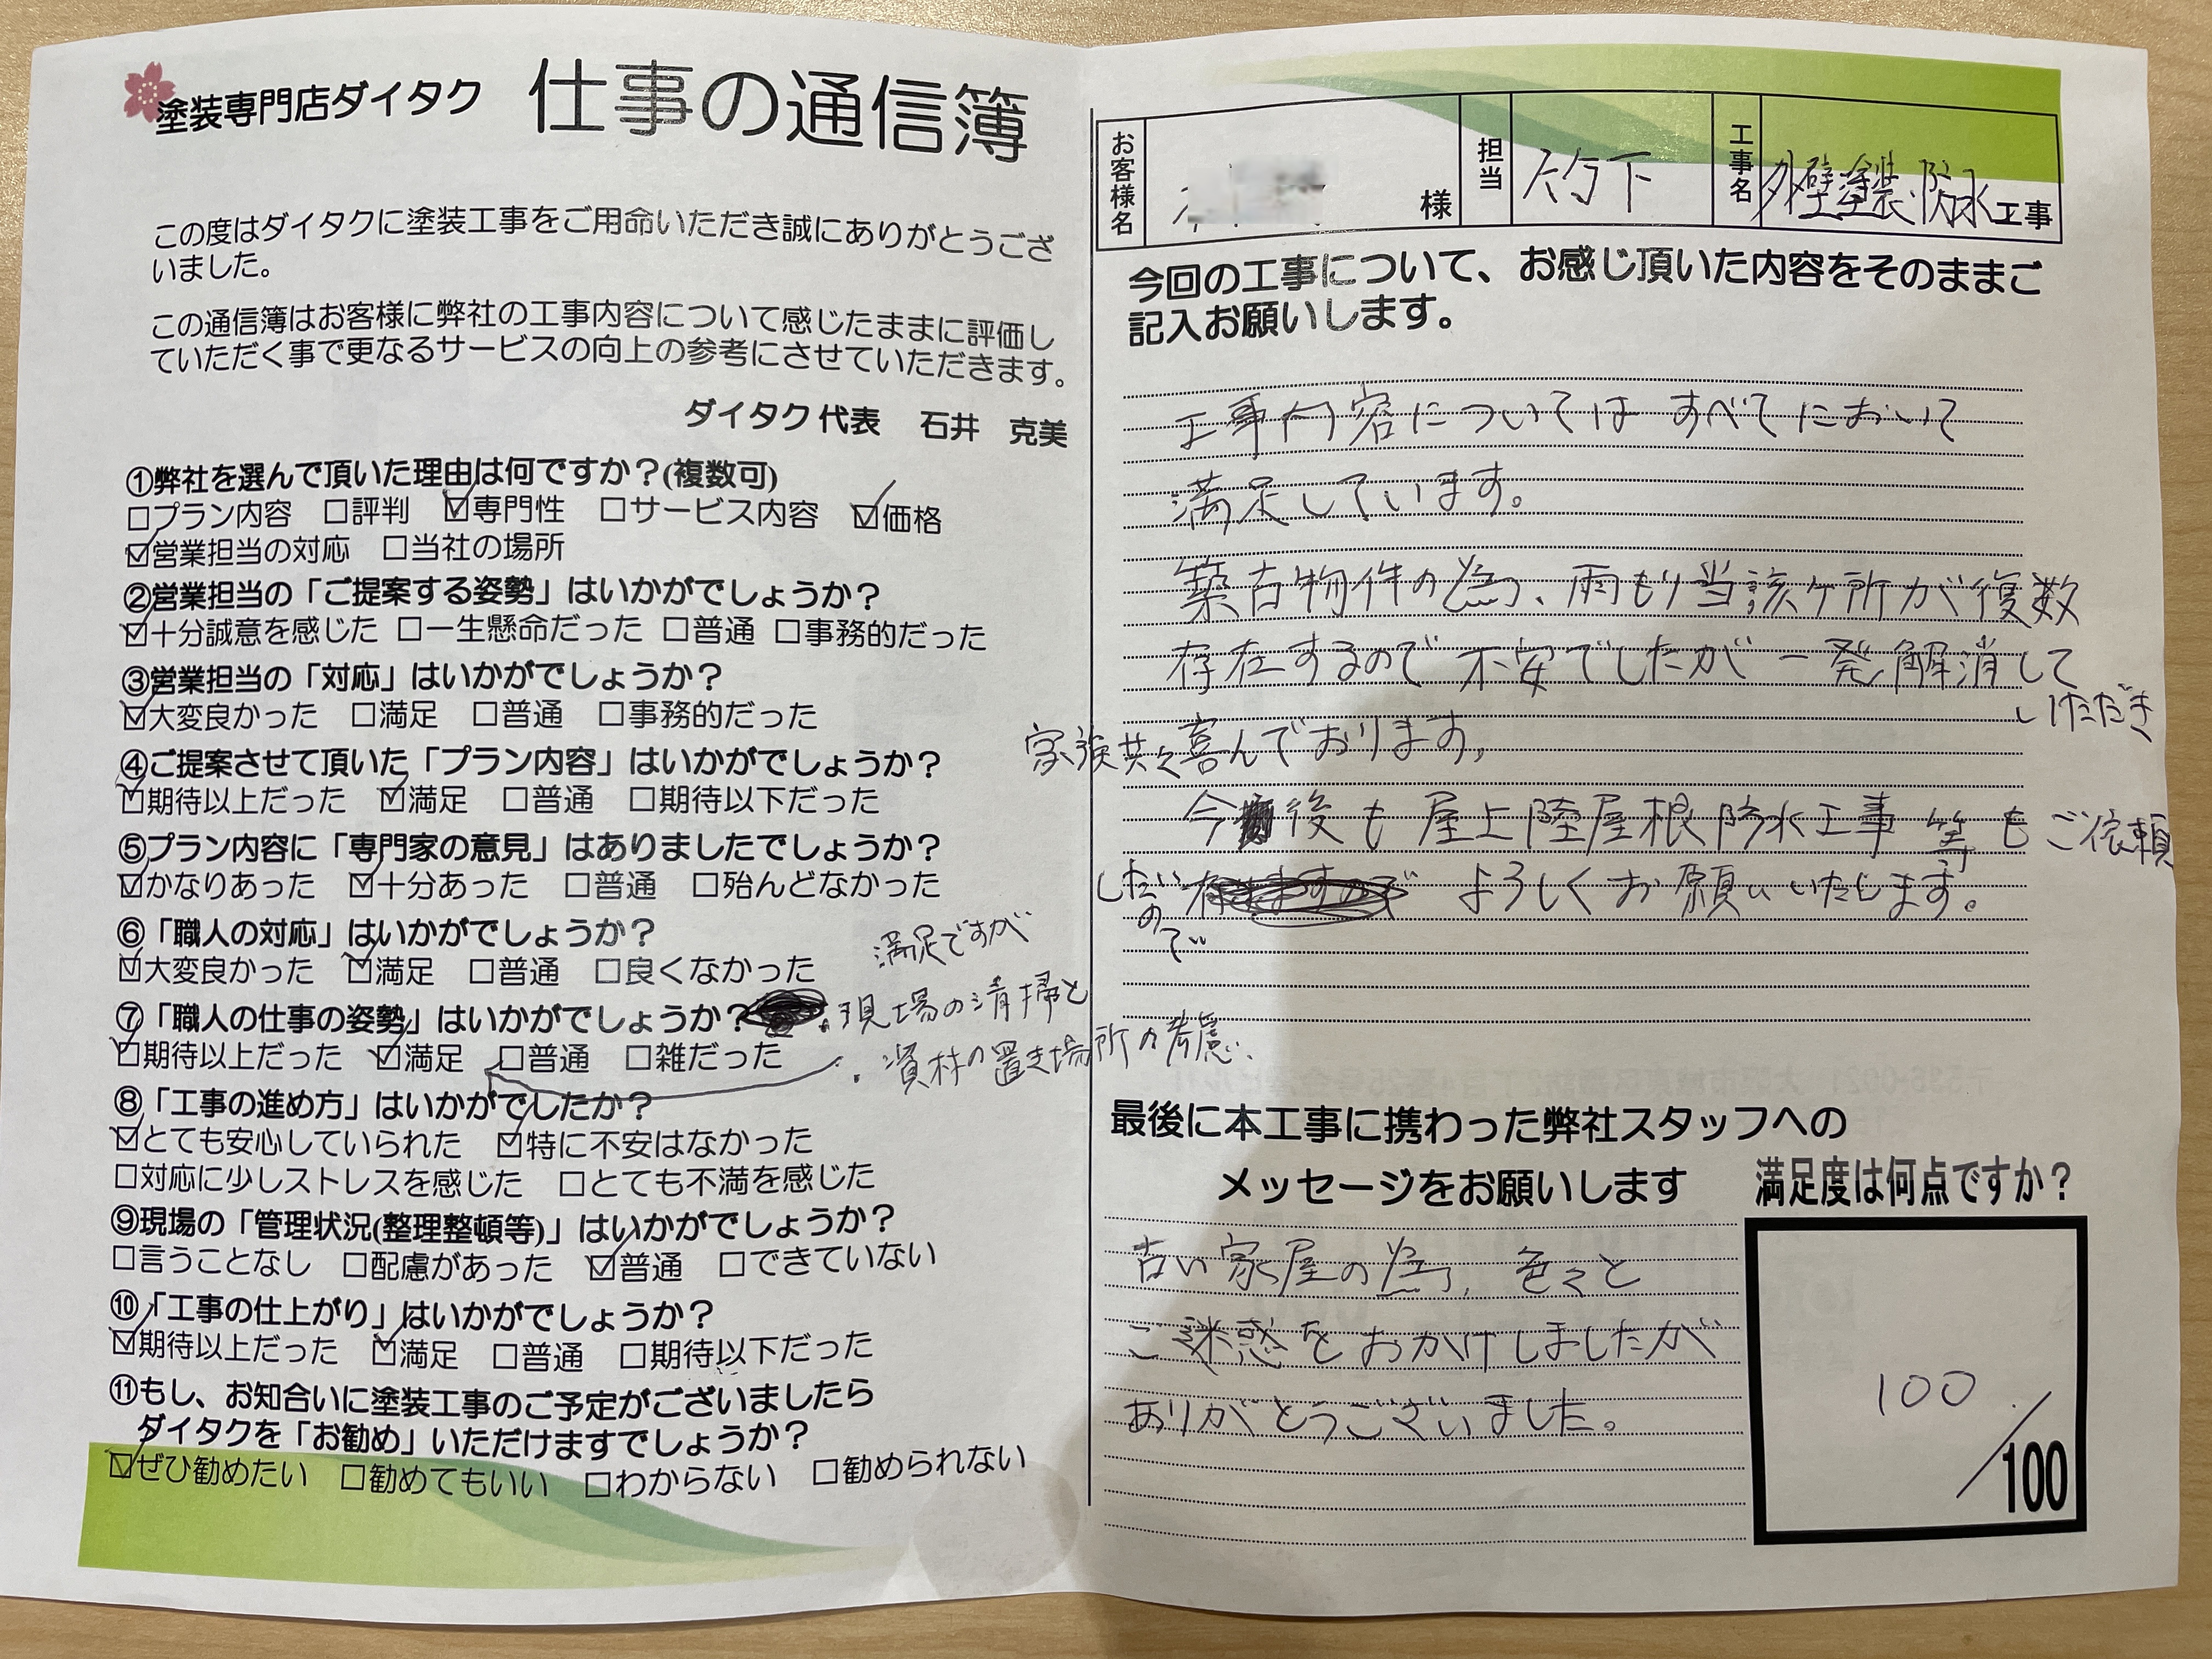 塗装専門店ダイタク 仕事の通信簿
この度はダイタクに塗装工事をご用命いただき誠にありがとうござ
いました。
この通信簿はお客様に弊社の工事内容について感じたままに評価し
ていただく事で更なるサービスの向上の参考にさせていただきます。
ダイタク代表 石井 克美
①弊社を選んで頂いた理由は何ですか?(複数可)
□プラン内容 □評判 ☑専門性 □サービス内容 ☑価格
☑営業担当の対応 □当社の場所
②営業担当の「ご提案する姿勢」はいかがでしょうか?
☑十分誠意を感じた □一生懸命だった □普通 □事務的だった
③営業担当の「対応」はいかがでしょうか?
☑大変良かった □満足 □普通 □事務的だった
④ご提案させて頂いた「プラン内容」はいかがでしょうか?
☑期待以上だった ☑満足 □普通 □期待以下だった
⑤プラン内容に「専門家の意見」はありましたでしょうか?
☑かなりあった ☑十分あった □普通 □殆んどなかった
⑥「職人の対応」はいかがでしょうか?
☑大変良かった ☑満足 □普通 □良くなかった
⑦「職人の仕事の姿勢」はいかがでしょうか?
☑期待以上だった ☑満足 □普通 □雑だった
満足ですが
・現場の清掃と
・資材の置き場所の考慮、
⑧「工事の進め方」はいかがでしたか?
☑とても安心していられた ☑特に不安はなかった
□対応に少しストレスを感じた □とても不満を感じた
⑨現場の「管理状況(整理整頓等)」はいかがでしょうか?
□言うことなし □配慮があった ☑普通 □できていない
⑩「工事の仕上がり」はいかがでしょうか?
☑期待以上だった ☑満足 □普通 □期待以下だった
⑪もし、お知合いに塗装工事のご予定がございましたら
ダイタクを「お勧め」いただけますでしょうか?
☑ぜひ勧めたい □勧めてもいい □わからない □勧められない
お客様名 様 担当 竹下 工事名 外壁塗装・防水工事
今回の工事について、お感じ頂いた内容をそのままご
記入お願いします。
工事内容については すべてにおいて
満足しています。
築古物件の為、雨もり当該ヶ所が復数
存在するので不安でしたが一発解消して
いただき
家族共々喜んでおります。
今後も屋上陸屋根防水工事等もご依頼
したいので よろしくお願いいたします。
最後に本工事に携わった弊社スタッフへの
メッセージをお願いします
古い家屋の為、色々と
ご迷惑をおかけしましたが
ありがとうございました。
満足度は何点ですか?
100/100